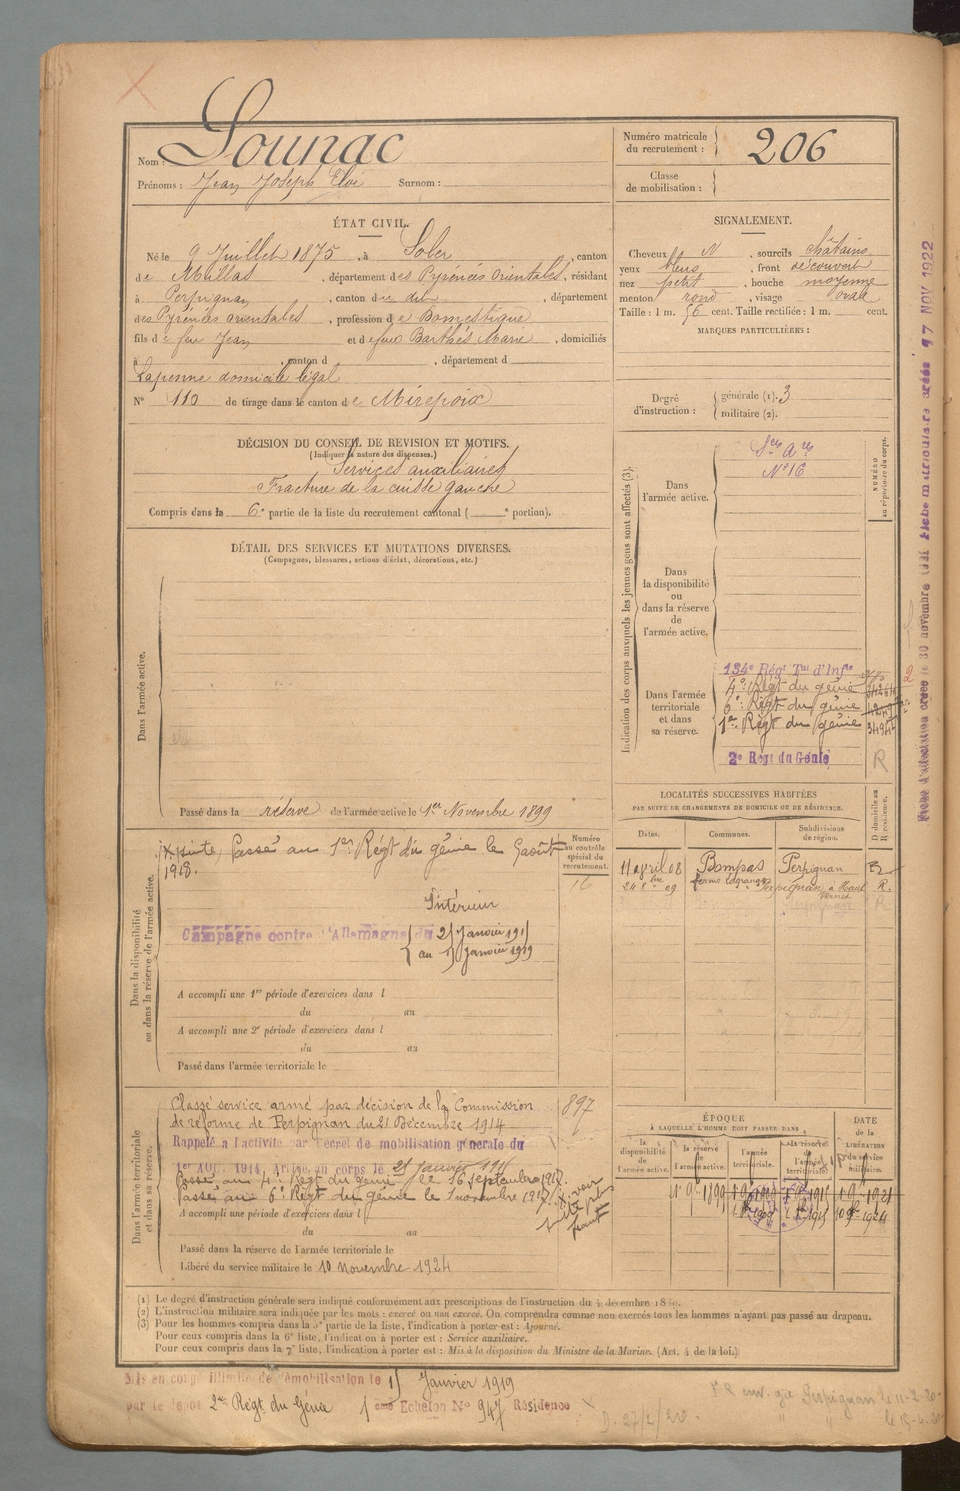 Nom : Lounac
Prénoms : Jean Joseph Eloi Surnom :
Numéro matricule du recrutement : 206
Classe de mobilisation :
ÉTAT CIVIL.
Né le 9 Juillet 1875, à Soler, canton
de Millas, département des Pyrénées Orientales, résidant
à Perpignan, canton du dit, département
des Pyrénées orientales, profession de Domestique
fils de feu Jean et de feue Barthés Marie, domiciliés
à , canton d , département d
Lapenne domicile légal
N° 110 de tirage dans le canton de Mirepoix
SIGNALEMENT.
Cheveux N, sourcils châtains
yeux bleus, front découvert
nez petit, bouche moyenne
menton rond, visage ovale
Taille : 1 m. 56 cent. Taille rectifiée : 1 m. cent.
MARQUES PARTICULIÈRES :
Degré d'instruction : générale (1). 3
militaire (2).
DÉCISION DU CONSEIL DE REVISION ET MOTIFS.
(Indiquer la nature des dispenses.)
Services auxiliaires
Fracture de la cuisse gauche
Compris dans la 6e partie de la liste du recrutement cantonal ( e portion).
DÉTAIL DES SERVICES ET MUTATIONS DIVERSES.
(Campagnes, blessures, actions d'éclat, décorations, etc.)
Dans l'armée active.
Passé dans la réserve de l'armée active le 1er Novembre 1899
Indication des corps auxquels les jeunes gens sont affectés (3).
NUMÉRO au répertoire du corps.
Dans l'armée active.
Ses Ares
N° 16
Dans la disponibilité ou dans la réserve de l'armée active.
Dans l'armée territoriale et dans sa réserve.
134e Régt Tal d'Infie
4e Régt du génie
6e Régt du génie
1er Régt du génie
2e Régt du Génie
R
2
LOCALITÉS SUCCESSIVES HABITÉES
PAR SUITE DE CHANGEMENTS DE DOMICILE OU DE RÉSIDENCE.
Dates. Communes. Subdivisions de région. D domicile ou R résidence.
11 april 08 Bompas Perpignan R
24 8bre 09 ferme Lagrange Perpignan a Haut Vernet R.
Dans la disponibilité ou dans la réserve de l'armée active.
Numéro au contrôle spécial du recrutement.
16
X suite, Passé au 1er Régt du génie le 6 août
1918.
Intérieur
Campagne contre l'Allemagne du 21 Janvier 1915
au 15 Janvier 1919
A accompli une 1re période d'exercices dans l
du au
A accompli une 2e période d'exercices dans l
du au
Passé dans l'armée territoriale le
Dans l'armée territoriale et dans sa réserve.
897
Classé service armé par décision de la Commission
de réforme de Perpignan du 21 Décembre 1914
Rappelé à l'activité par Décret de mobilisation générale du
1er Août 1914, Arrivé au corps le 21 Janvier 1915
Passé au 4e Régt du génie le 16 septembre 1917.
Passé au 6e Régt du génie le 1 novembre 1917. X voir suite plus haut
A accompli une période d'exercices dans l
du au
Passé dans la réserve de l'armée territoriale le
Libéré du service militaire le 10 novembre 1924
ÉPOQUE
À LAQUELLE L'HOMME DOIT PASSER DANS
la disponibilité de l'armée active. la réserve de l'armée active. l'armée territoriale. la réserve de l'armée territoriale.
DATE de la LIBÉRATION du service militaire.
(1) Le degré d'instruction générale sera indiqué conformément aux prescriptions de l'instruction du 4 décembre 1889.
(2) L'instruction militaire sera indiquée par les mots : exercé ou non exercé. On comprendra comme non exercés tous les hommes n'ayant pas passé au drapeau.
(3) Pour les hommes compris dans la 5e partie de la liste, l'indication à porter est : Ajourné.
Pour ceux compris dans la 6e liste, l'indication à porter est : Service auxiliaire.
Pour ceux compris dans la 7e liste, l'indication à porter est : Mis à la disposition du Ministre de la Marine. (Art. 4 de la loi.)
Mis en congé illimité de démobilisation le 15 Janvier 1919
par le dépôt 2me Régt du Génie 1ème Echelon N° 947 Résidence
D. 27/2/20